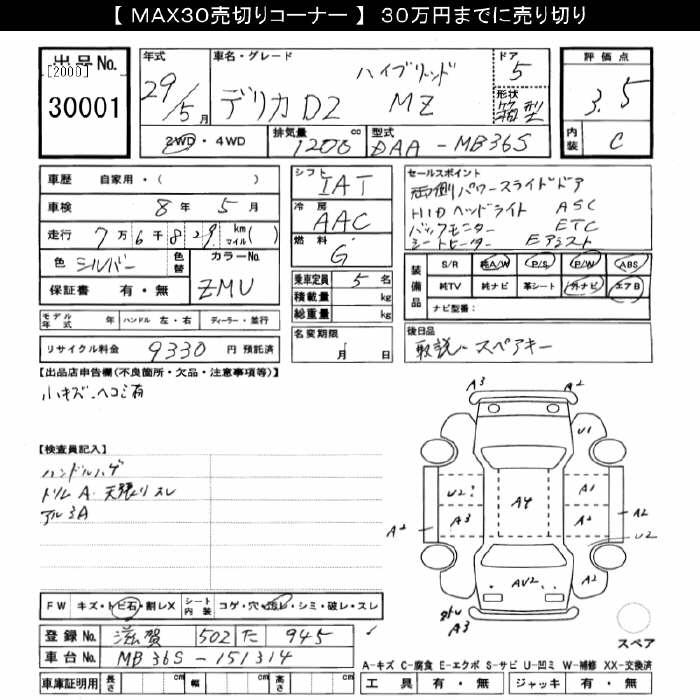 【 MAX30売切りコーナー 】 30万円までに売り切り
出品No. [2000] 30001
年式 29/5月
車名・グレード ハイブリッド デリカD2 MZ
ドア 5
形状 箱型
評価点 3.5
内装 C
2WD・4WD
排気量 1200 cc
型式 DAA-MB36S
車歴 自家用・( )
車検 8年5月
走行 7万6千829 km マイル( )
色 シルバー 色替 カラーNo. ZMU
保証書 有・無
モデル年式 年 ハンドル 左・右 ディーラー・並行
リサイクル料金 9330 円 預託済
シフト IAT
冷房 AAC
燃料 G
乗車定員 5名
積載量 kg
総重量 kg
名変期限 月 日
セールスポイント
両側パワースライドドア
HIDヘッドライト ASC
バックモニター ETC
シートヒーター Eアシスト
装備品 S/R 純A/W P/S P/W ABS
純TV 純ナビ 革シート 外ナビ エアB
ナビ型番:
後日品
取説、スペアキー
【出品店申告欄(不良箇所・欠品・注意事項等)】
小キズ、ヘコミ有
【検査員記入】
ハンドルハゲ
トリムA 天張りスレ
アル3A
A3 A2
U1
U2 A4 A1
A2 A3 A2 A2
U2
AU2 A2
A3
スペア
FW キズ・トビ石・割レX シート内装 コゲ・穴・汚レ・シミ・破レ・スレ
登録No. 滋賀 502 た 945
車台No. MB36S-151314
A-キズ C-腐食 E-エクボ S-サビ U-凹ミ W-補修 XX-交換済
車庫証明用 長さ cm 幅 cm 高さ cm
工具 有・無 ジャッキ 有・無